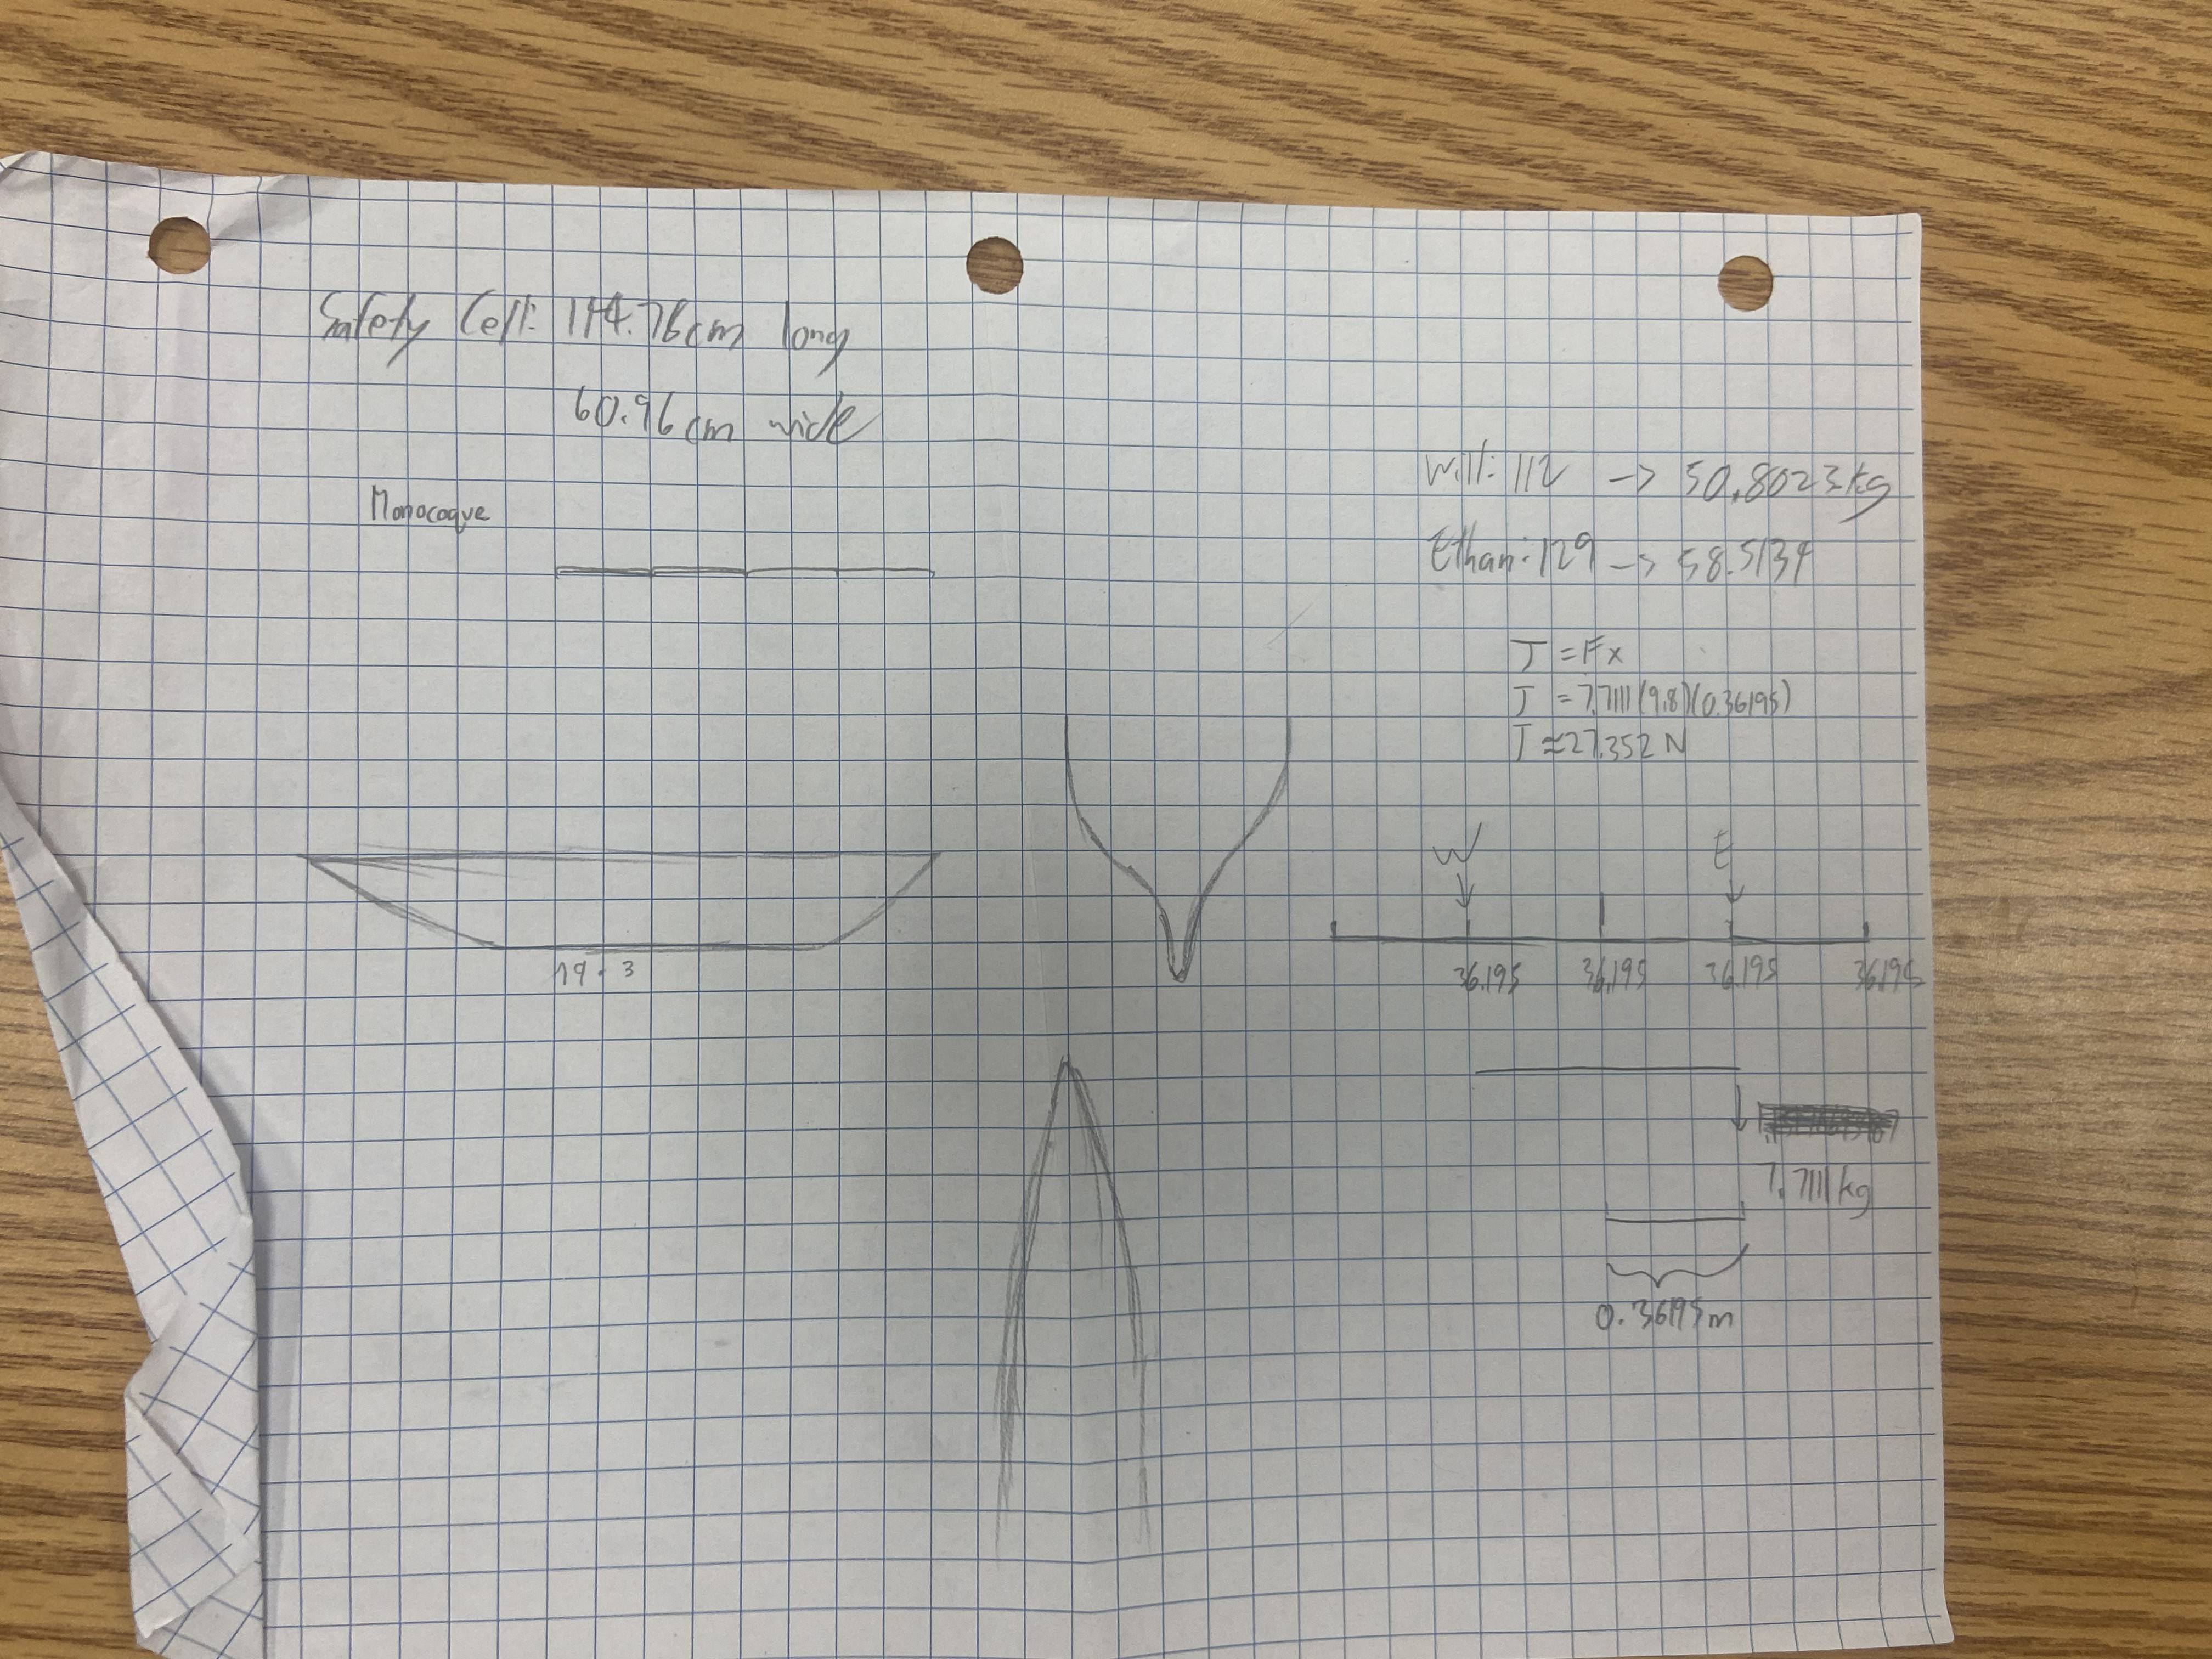 Safety Cell: 114.76cm long
60.96cm wide
Monocoque
Will: 112 -> 50.8023kg
Ethan: 129 -> 58.5134
T = Fx
T = 7.7111(9.8)(0.36195)
T ≈ 27.352 N
W
E
36.195
36.195
36.195
36.195
7.7111kg
0.36195m